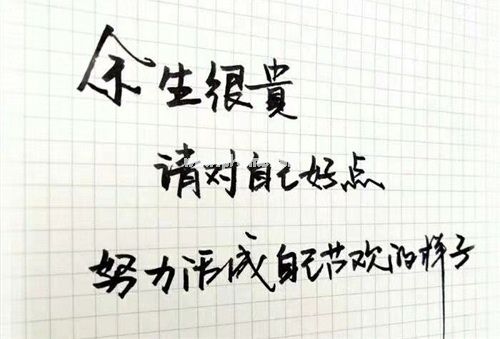 余生很貴
请对自己好点
努力活成自己喜欢的样子